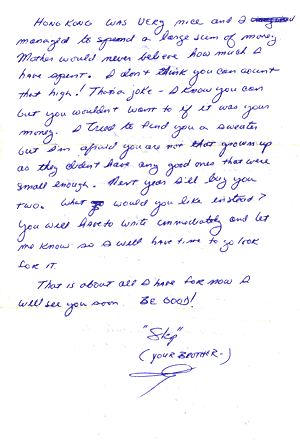 HONG KONG WAS VERY NICE AND I
MANAGED TO SPEND A LARGE SUM OF MONEY.
MOTHER WOULD NEVER BELIEVE HOW MUCH I
HAVE SPENT. I DON'T THINK YOU CAN COUNT
THAT HIGH! THAT'S A JOKE - I KNOW YOU CAN
BUT YOU WOULDN'T WANT TO IF IT WAS YOUR
MONEY. I TRIED TO FIND YOU A SWEATER
BUT I'M AFRAID YOU ARE NOT THAT GROWN UP
AS THEY DIDN'T HAVE ANY GOOD ONES THAT WERE
SMALL ENOUGH. NEXT YEAR I'LL BUY YOU
TWO. WHAT WOULD YOU LIKE INSTEAD?
YOU WILL HAVE TO WRITE IMMEDIATELY AND LET
ME KNOW SO I WILL HAVE TIME TO GO LOOK
FOR IT.
THAT IS ABOUT ALL I HAVE FOR NOW I
WILL SEE YOU SOON. BE GOOD!
"Skip"
(YOUR BROTHER-)